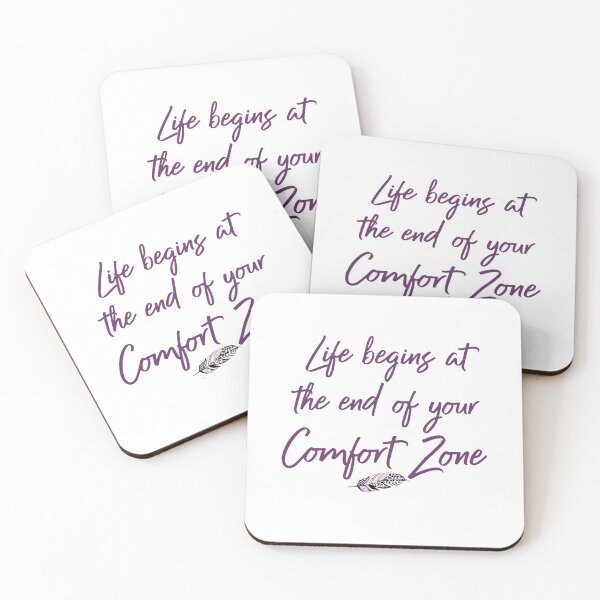 Life begins at
the end of your
Zon
Life begins at
the end of your
Comfort Zone
Life begins at
the end of your
Comfort Z
Life begins at
the end of your
Comfort Zone